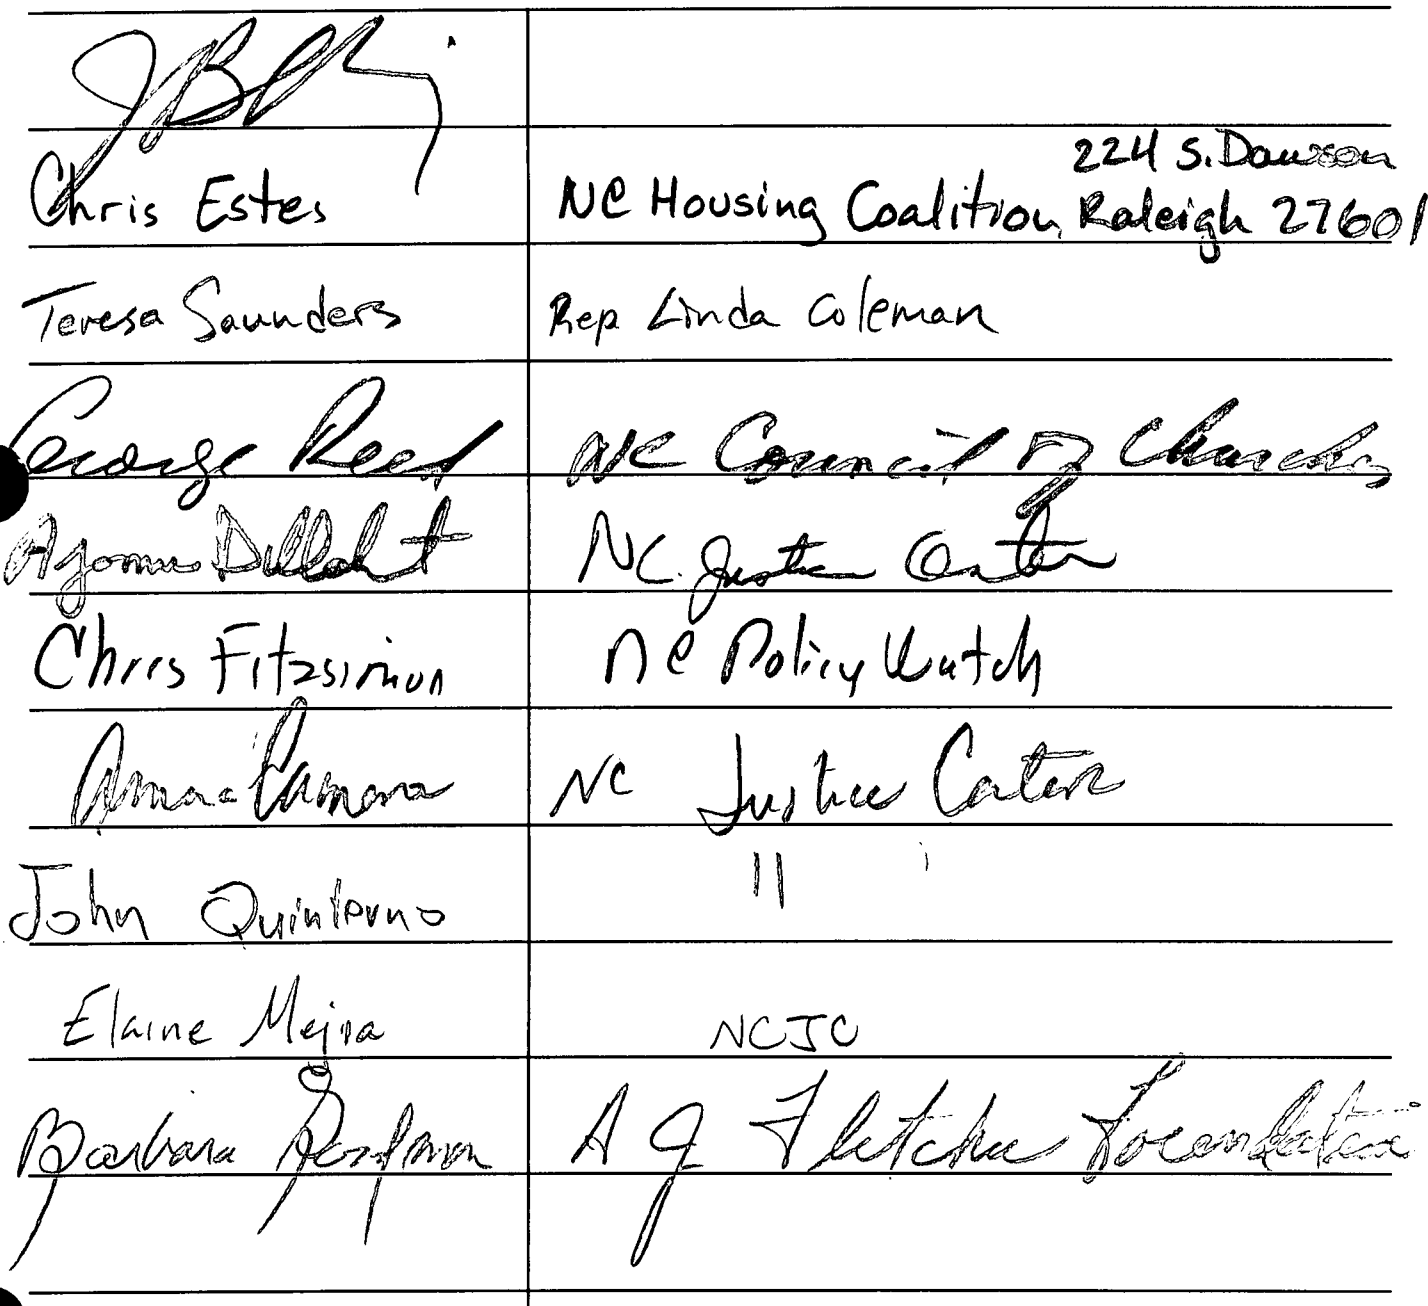 224 S. Dawson
Chris Estes NC Housing Coalition, Raleigh 27601
Teresa Saunders Rep Linda Coleman
George Reed NC Council of Churches
Ajamu Dillahunt NC Justice Center
Chris Fitzsimon NC Policy Watch
NC Justice Center
John Quinterno "
Elaine Mejia NCJC
Barbara A J Fletcher Foundation